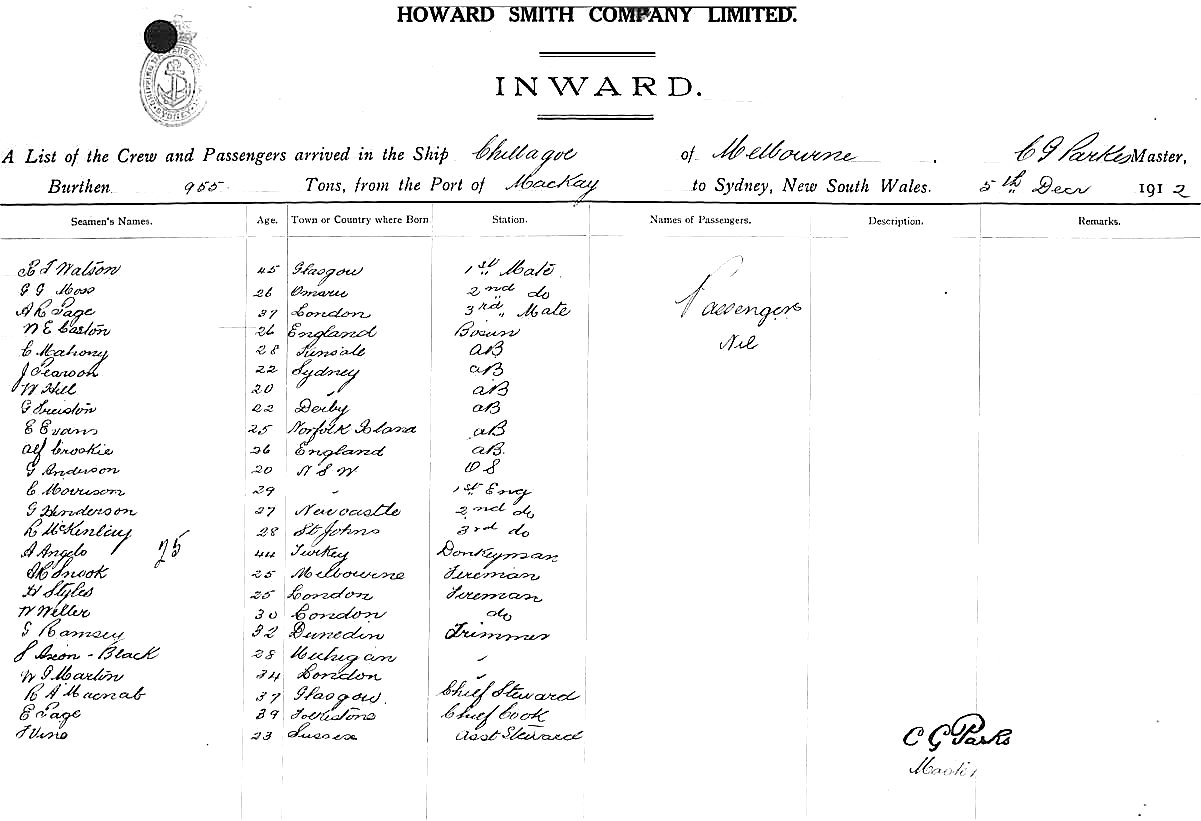 HOWARD SMITH COMPANY LIMITED.
INWARD.
A List of the Crew and Passengers arrived in the Ship Chillagoe of Melbourne, C G Parks Master,
Burthen 955 Tons, from the Port of Mackay to Sydney, New South Wales. 5th Decr 1912
Seamen's Names. Age. Town or Country where Born Station. Names of Passengers. Description. Remarks.
Watson 45 Glasgow 1st Mate
G G Moss 26 Omaru 2nd do
Passengers
A L Page 37 London 3rd Mate
W E Easton 26 England Bosun
Nil
C Mahony 28 Kinsale AB
J Pearson 22 Sydney AB
W Hill 20 " AB
G 22 Derby AB
E Evans 25 Norfolk Island AB
Alf Crookie 26 England AB.
G Anderson 20 N S W O S
C Morrison 29 " 1st Eng
G Henderson 27 Newcastle 2nd do
R McKinlay 28 St Johns 3rd do
25
A Angelo 44 Turkey Donkeyman
Snook 25 Melbourne Fireman
H Styles 25 London Fireman
W Weller 30 London do
Ramsey 32 Dunedin Trimmer
Black 28 Michigan "
W J Martin 34 London
R A Macnab 37 Glasgow. Chief Steward
E Page 39 Folkstone Chief Cook
Vine 23 Sussex Asst Steward
C G Parks
Master